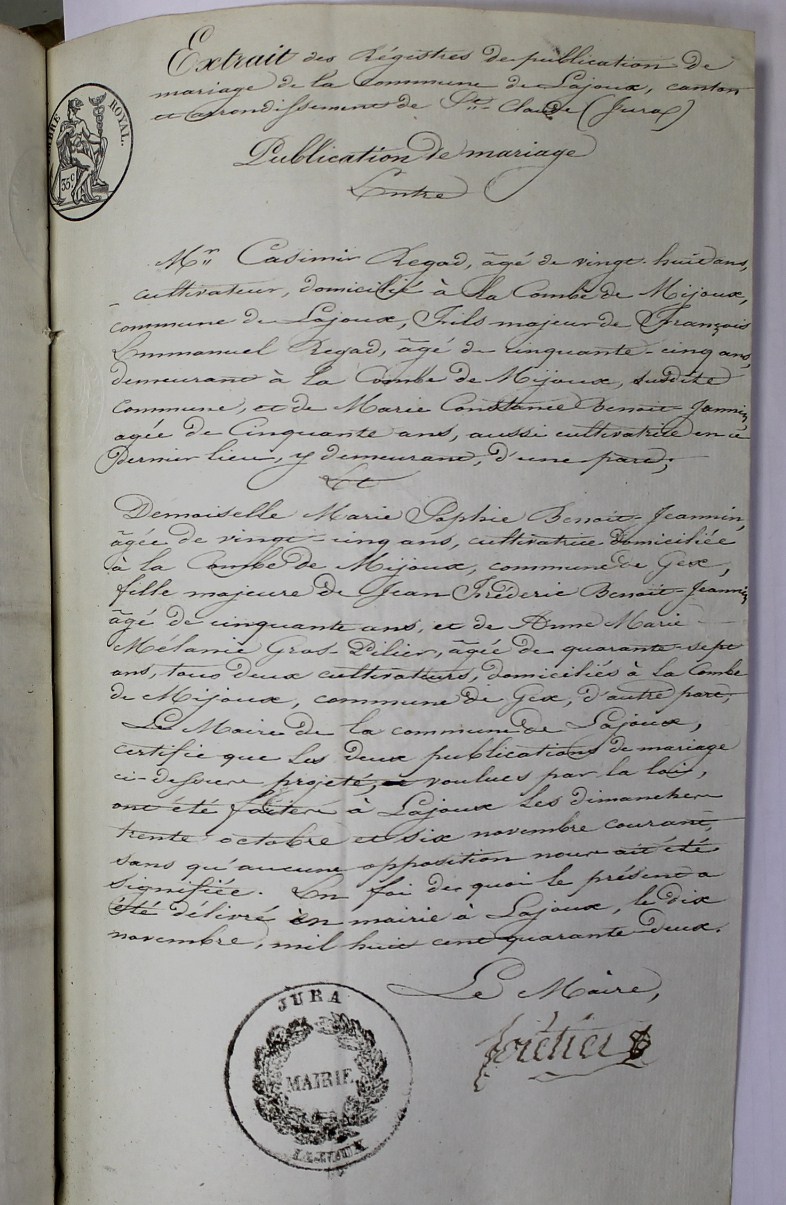 Extrait des Régistres de publication de
mariage de la commune de Lajoux, canton
et arrondissement de St. Claude (Jura)
ROYAL.
35c
Publication de mariage
Entre
Mr. Casimir Regad, âgé de vingt-huit ans,
cultivateur, domicilié à la Combe de Mijoux,
commune de Lajoux, Fils majeur de François
Emmanuel Regad, âgé de cinquante-cinq ans,
demeurant à la Combe de Mijoux, susdite
commune, et de Marie Constance Benoit-Jannin,
agée de Cinquante ans, aussi cultivatrice en ce
Dernier lieu, y demeurant, d'une part;
Et
Demoiselle Marie Sophie Benoit-Jeannin,
âgée de vingt-cinq ans, cultivatrice domiciliée
à la Combe de Mijoux, commune de Gex,
fille majeure de Jean Fréderic Benoit-Jeannin,
âgé de cinquante ans, et de Anne Marie
Mélanie Gros-Pilier, âgée de quarante-sept
ans, tous deux cultivateurs, domiciliés à la Combe
de Mijoux, commune de Gex, d'autre part,
Le Maire de la commune de Lajoux,
certifie que les deux publications de mariage
ci-dessus projeté, voulues par la loi,
ont été faites à Lajoux les dimanches
trente octobre et six novembre courant,
sans qu'aucune opposition nous ait été
signifiée. En foi de quoi le présent a
été délivré en mairie à Lajoux, le dix
novembre, mil huit cent quarante-deux.
Le Maire,
JURA
MAIRIE
LAJOUX